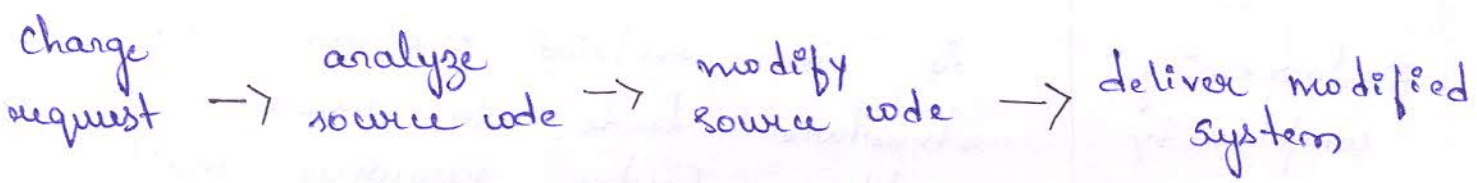 change request → analyze source code → modify source code → deliver modified system